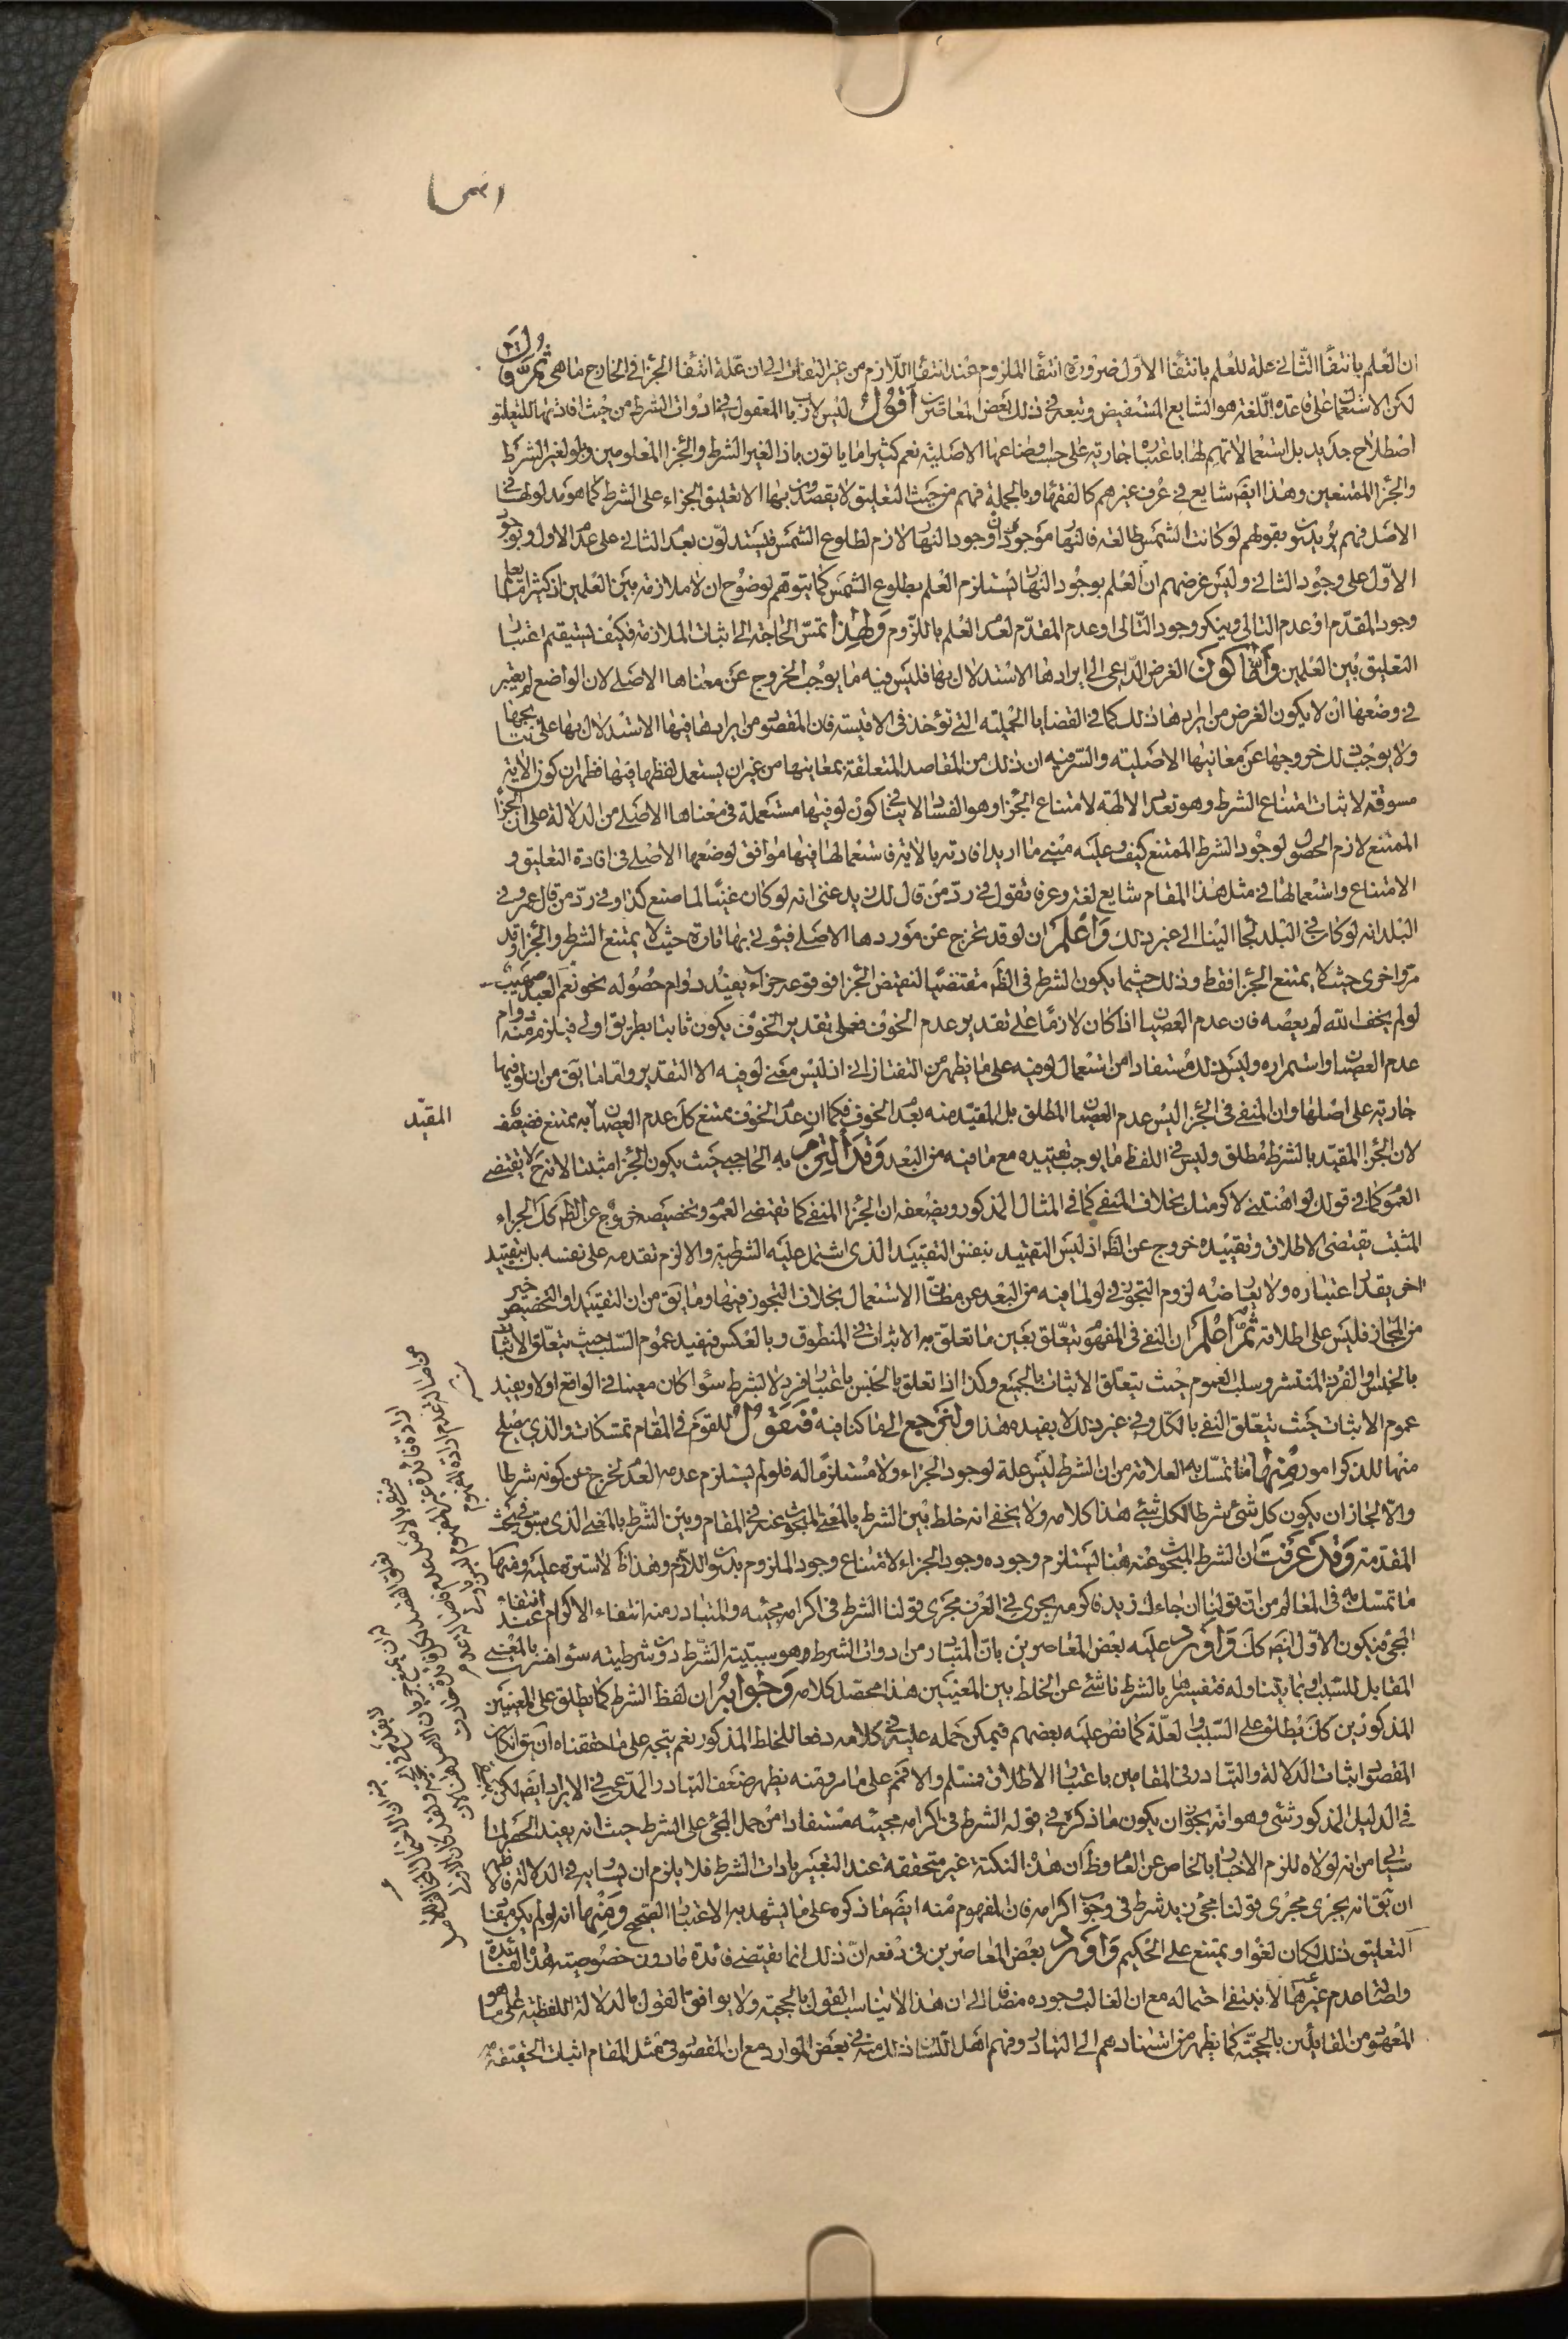 ان العلم بانتفاء الثاني علة للعلم بانتفاء الاول ضرورة انتفاء الملزوم عند انتفاء اللازم من غير التفات الى ان علة انتفاء الجزاء في الخارج ما هي ثم قال
لكن الاستعمال على قاعدة اللغة هو الشايع المستفيض وتبعه في ذلك بعض المعاصرين اقول ليس لارباب المعقول في ادوات الشرط من حيث افادتها للتعليق
اصطلاح جديد بل استعمالاتهم لها باعتباره جارية على حسب اوضاعها الاصلية نعم كثيرا ما ياتون باداة لغير الشرط والجزاء المعلومين ولو لغير الشرط
والجزاء الممتنعين وهذا ايضا شايع في عرف غيرهم كالفقهاء وبالجملة فهم من حيث التعليق لا يقصدون بها الا تعليق الجزاء على الشرط كما هو مدلولها في
الاصل فهم يريدون بقولهم لو كانت الشمس طالعة فالنهار موجود ان وجود النهار لازم لطلوع الشمس فيستدلون بعدم الثاني على عدم الاول وبوجود
الاول على وجود الثاني وليس غرضهم ان العلم بوجود النهار يستلزم العلم بطلوع الشمس كما يتوهم لوضوح ان لا ملازمة بين العلمين اذ كثيرا ما يعلم
وجود المقدم او عدم التالي وينكر وجود التالي او عدم المقدم لعدم العلم باللزوم ولهذا تمس الحاجة الى اثبات الملازمة فكيف يستقيم اعتبار
التعليق بين العلمين واما كون الغرض الداعي الى ايرادها الاستدلال بها فليس فيه ما يوجب الخروج عن معناها الاصلي لان الواضع لم يعتبر
في وضعها ان لا يكون الغرض من ايرادها ذلك كما في القضايا الحملية التي تؤخذ في الاقيسة فان المقصود من ايرادها فيها الاستدلال بها على نتايجها
ولا يوجب ذلك خروجها عن معانيها الاصلية والسر فيه ان ذلك من المقاصد المتعلقة بمعانيها من غير ان يستعمل لفظها فيها فظهر ان كون الاية
مسوقة لاثبات امتناع الشرط وهو تعدد الالهة لامتناع الجزاء وهو الفساد لا ينافي كون لو فيها مستعملة في معناها الاصلي من الدلالة على ان الجزاء
الممتنع لازم الحصول لوجود الشرط الممتنع كيف وعليه مبنى ما اريد افادته بالاية فاستعمالها فيها موافق لوضعها الاصلي في افادة التعليق و
الامتناع واستعمالها في مثل هذا المقام شايع لغة وعرفا تقول في رد من قال لك زيد غني انه لو كان غنيا لما صنع كذا وفي رد من قال عمرو في
البلد انه لو كان في البلد لجاء الينا الى غير ذلك واعلم ان لو قد تخرج عن موردها الاصلي فيؤتى بها تارة حيث لا يمتنع الشرط والجزاء وقد
مر واخرى حيث لا يمتنع الجزاء فقط وذلك حيثما يكون الشرط في الظاهر مقتضيا لنقيض الجزاء فوقوعه جزاء يفيد دوام حصوله نحو نعم العبد صهيب
لو لم يخف الله لم يعصه فان عدم العصيان اذا كان لازما على تقدير عدم الخوف فعلى تقدير الخوف يكون ثابتا بطريق اولى فيلزم منه دوام
عدم العصيان واستمراره وليس ذلك مستفادا من استعمال لو فيه على ما يظهر من التفتازاني اذ ليس معنى لو فيه الا التقدير واما ما يق من ان لو فيها
جارية على اصلها وان المنفي في الجزاء ليس عدم العصيان المطلق بل المقيد منه بعدم الخوف فكما ان عدم الخوف ممتنع كك عدم العصيان به ممتنع فضعيف
المقيد
لان الجزاء المقيد بالشرط مطلق وليس في اللفظ ما يوجب تقييده مع ما فيه من البعد وقد التزم به الحاجبي حيث يكون الجزاء مثبتا لانه ح لا يقتضي
العموم كما في قولك لو اهنتني لاكرمتك بخلاف المنفي كما في المثال المذكور ويضعفه ان الجزاء المنفي كما تقتضي العموم وتخصيصه خروج عن الظاهر كك الجزاء
المثبت يقتضي الاطلاق وتقييده خروج عن الظاهر اذ ليس التقييد بنفس التقييد الذي اشتمل عليه الشرطية والا لزم تقدمه على نفسه بل بتقييد
اخر يقدر اعتباره ولا يعارضه لزوم التجوز في لو لما فيه من البعد عن مظان الاستعمال بخلاف التجوز فيها وما يق من ان التقييد او التخصيص خير
من المجاز فليس على اطلاقه ثم اعلم ان النفي في المفهوم يتعلق بعين ما تعلق به الاثبات في المنطوق وبالعكس فيفيد عموم السلب حيث يتعلق الاثبات
بالجنس او الفرد المنتشر وسلب العموم حيث يتعلق الاثبات بالجميع وكذا اذا تعلق بالجنس باعتبار فرد لا بشرط سواء كان معينا في الواقع اولا ويفيد
عموم الاثبات حيث يتعلق النفي بالكل وفي غير ذلك لا يفيده هذا ولنرجع الى ما كنا فيه فنقول للقوم في المقام تمسكات والذي يصلح
منها للذكر امور منها ما تمسك به العلامة من ان الشرط ليس علة لوجود الجزاء ولا مستلزما له فلو لم يستلزم عدمه العدم لخرج عن كونه شرطا
والا لجاز ان يكون كل شئ شرطا لكل شئ هذا كلامه ولا يخفى انه خلط بين الشرط بالمعنى المبحوث عنه في المقام وبين الشرط بالمعنى الذي سبق في بحث
المقدمة وقد عرفت ان الشرط المبحوث عنه هنا يستلزم وجوده وجود الجزاء لامتناع وجود الملزوم بدون اللازم وهذا ظاهر لا سترة عليه ومنها
ما تمسك به في المعالم من ان قولنا ان جاءك زيد فاكرمه يجري في العرف مجرى قولنا الشرط في اكرامه مجيئه والمتبادر منه انتفاء الاكرام عند انتفاء
المجئ فيكون الاول ايضا كك واورد عليه بعض المعاصرين بان المتبادر من ادوات الشرط هو سببية الشرط دون شرطيته سواء فسرت بالمعنى
المقابل للسبب او بما يتناوله فتفسيرها بالشرط ناشئ عن الخلط بين المعنيين هذا محصل كلامه وجوابه ان لفظ الشرط كما يطلق على المعنيين
المذكورين كك يطلق على السبب والعلة كما نص عليه بعضهم فيمكن حمله عليه في كلامه دفعا للخلط المذكور نعم يتجه على ما حققناه ان يق ان كان
المقصود اثبات الدلالة والتبادر في المقامين باعتبار الاطلاق فمسلم والا فمنع على ما مر ومنه يظهر ضعف التبادر المدعى في الايراد ايضا لكن
في الدليل المذكور شئ وهو انه يجوز ان يكون ما ذكره في قوله الشرط في اكرامه مجيئه مستفادا من حمل المجئ على الشرط حيث انه يفيد الحصر لما
سياتي من انه لولاه للزم الاخبار بالخاص عن العام وظاهر ان هذه النكتة غير متحققة عند التعبير بادات الشرط فلا يلزم ان يساويه في الدلالة فالاظهر
ان يق انه يجري مجرى قولنا مجئ زيد شرط في وجوب اكرامه فان المفهوم منه ايضا ما ذكره على ما يشهد به الاعتبار الصحيح ومنها انه لو لم يكن مفيدا
التعليق ذلك لكان لغوا ويمتنع على الحكيم واورد بعض المعاصرين في دفعه ان ذلك انما يقتضي فائدة ما دون خصوصية هذه الفائدة
واصالة عدم غيرها لا ينفي احتماله مع ان الغالب وجوده مضافا الى ان هذا لا يناسب القول بالحجية ولا يوافق القول بالدلالة اللفظية على ما هو
المعهود من القائلين بالحجية كما يظهر من استنادهم الى التبادر وفهم اهل اللسان ذلك منه في بعض الموارد مع ان المقصود في مثل المقام اثبات الحقيقة